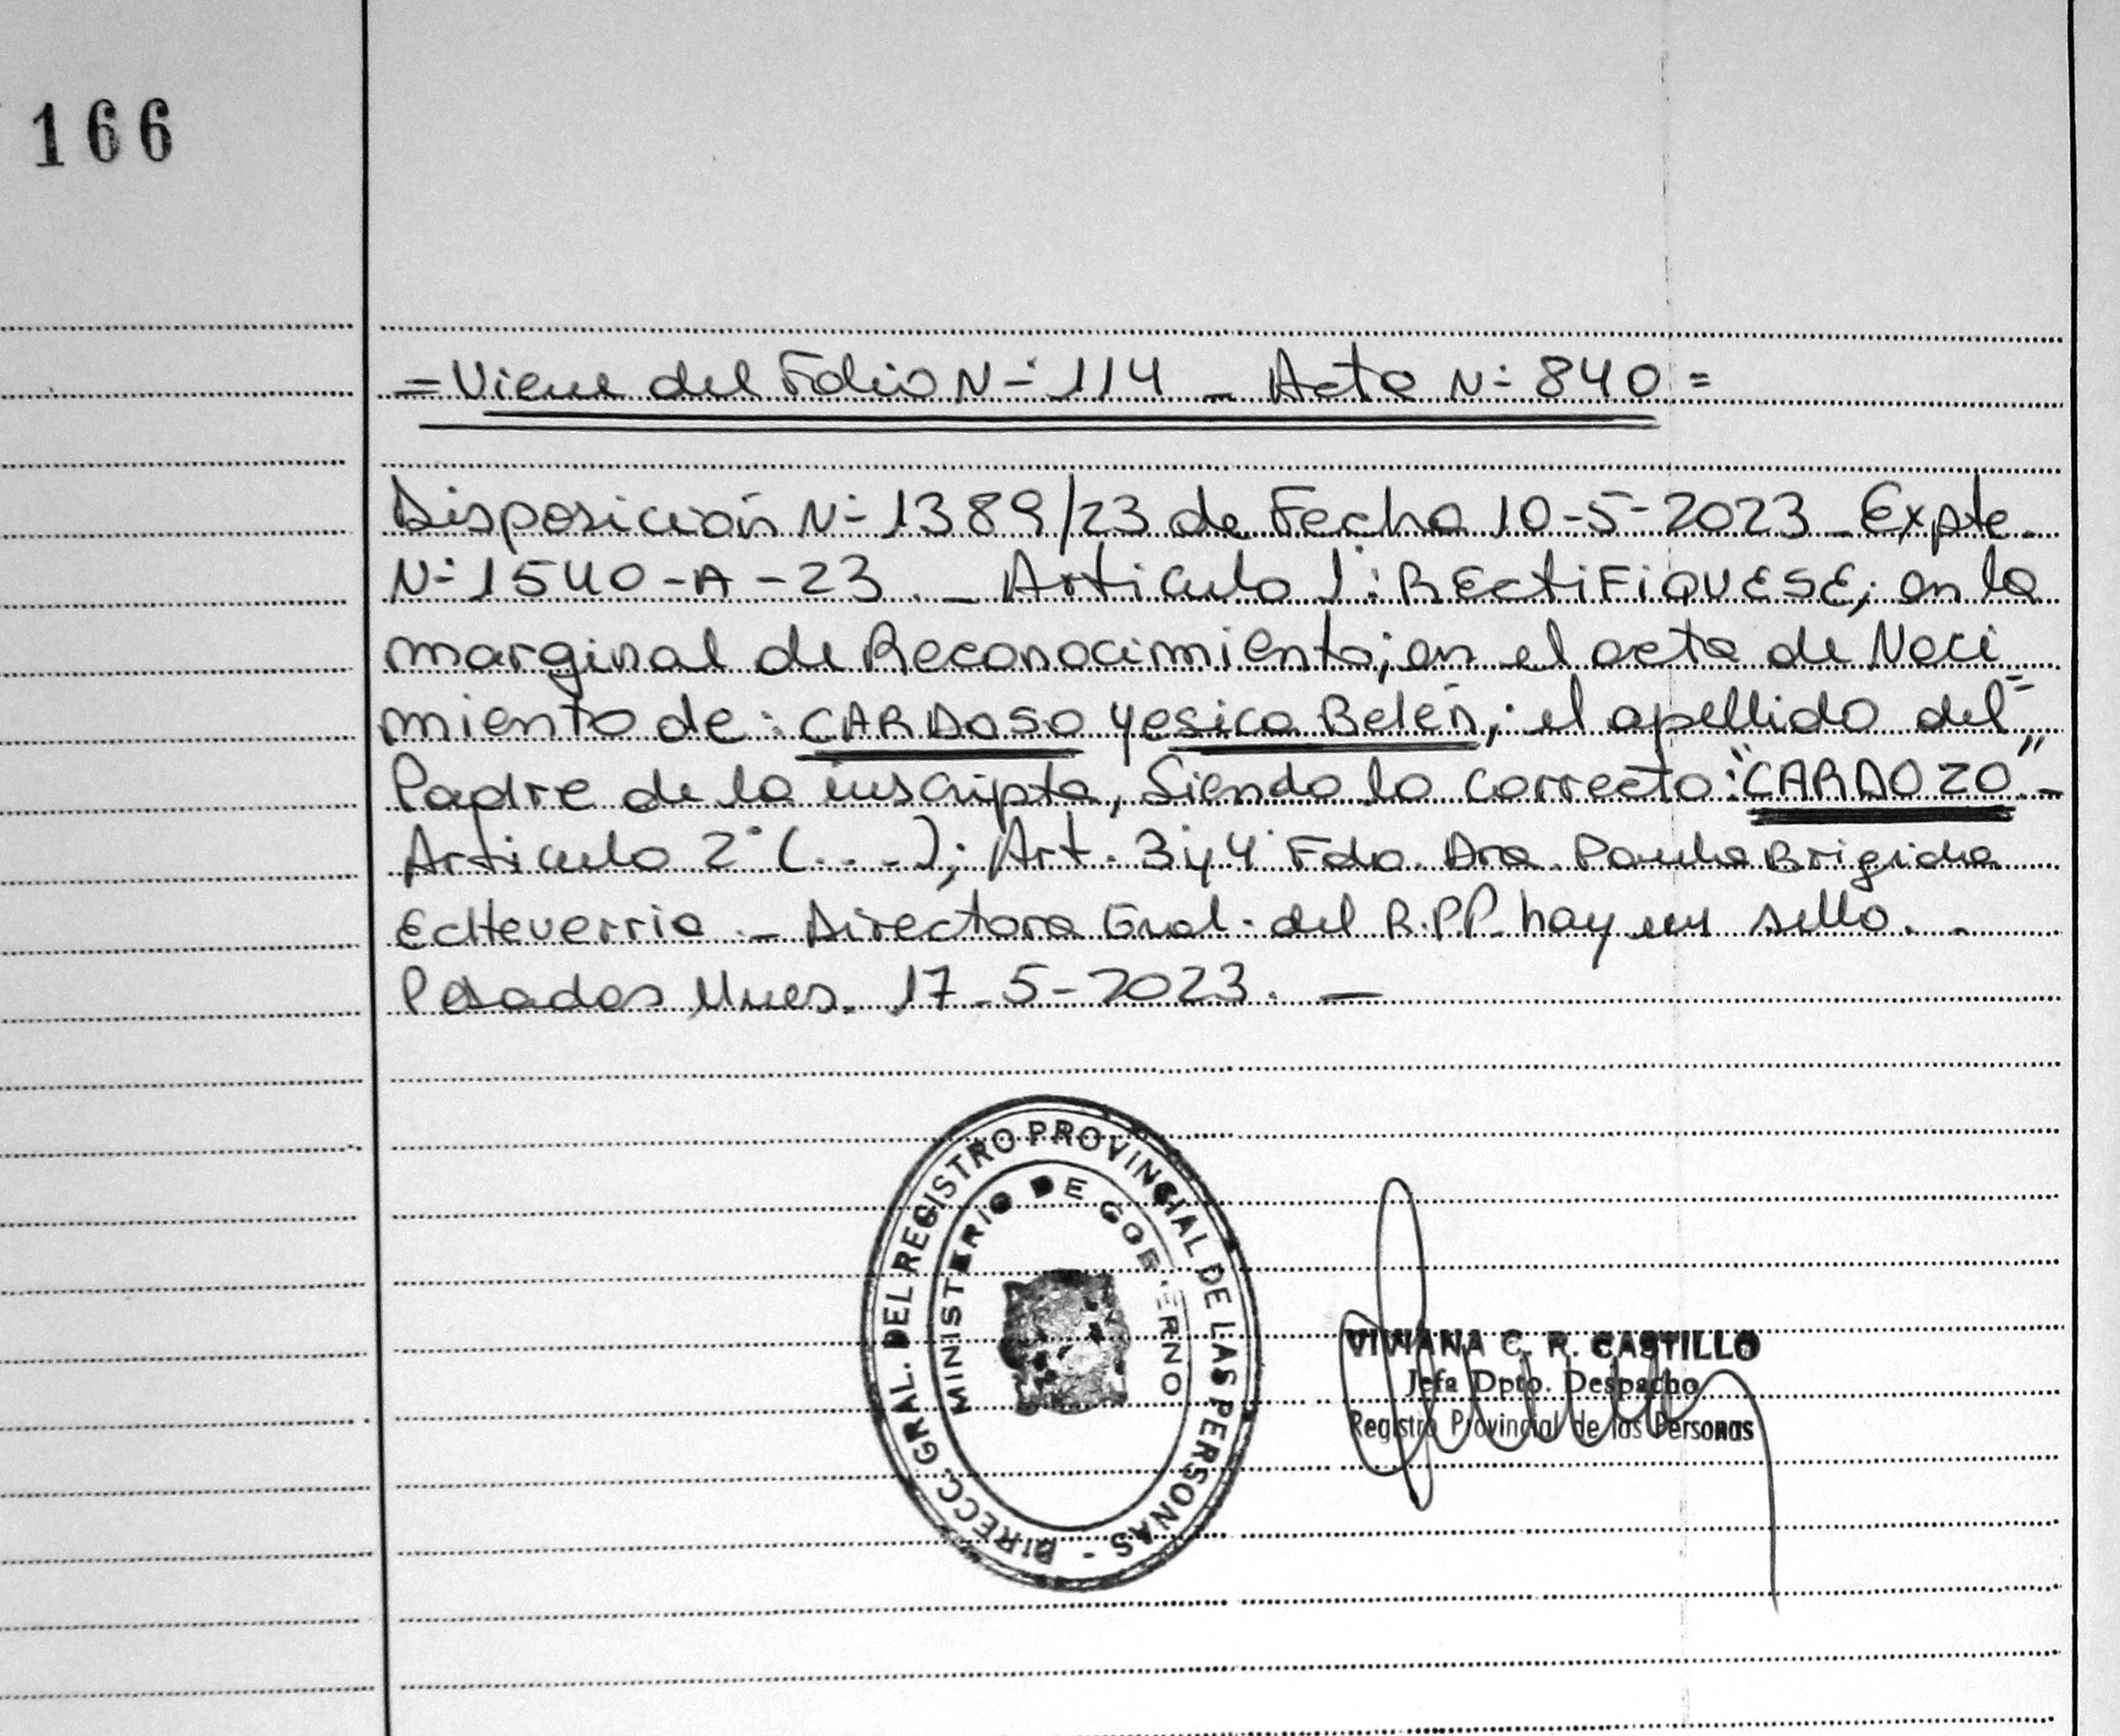 166
= Viene del Folio N-° 114 _ Acta N-° 840 =
Disposición N-° 1389/23 de Fecha 10-5-2023 _ Expte.
N-° 1540-A-23. _ Articulo 1°: RECtiFiQUESE; en la
marginal de Reconocimiento; en el acta de Naci
miento de: CARDOSO Yesica Belén; el apellido del =
Padre de la inscripta, Siendo lo Correcto: "CARDOZO" _
Articulo 2° (...); Art. 3 y 4° Fdo. Dra. Paula Brigida
Echeverria _ Directora Gral. del R.P.P. hay un sello. _
Posadas Mnes. 17-5-2023. _
DIRECC. GRAL. DEL REGISTRO PROVINCIAL DE LAS PERSONAS -
MINISTERIO DE GOBIERNO
VIVIANA C. R. CASTILLO
Jefa Dpto. Despacho
Registro Provincial de las Personas